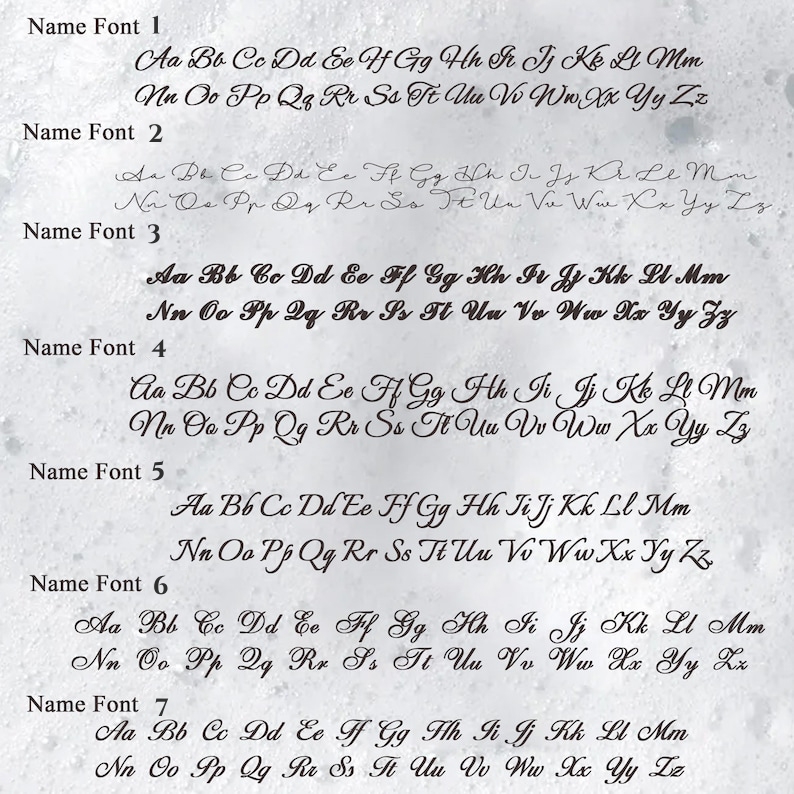 Name Font 1
Aa Bb Cc Dd Ee Ff Gg Hh Ii Jj Kk Ll Mm
Nn Oo Pp Qq Rr Ss Tt Uu Vv Ww Xx Yy Zz
Name Font 2
Aa Bb Cc Dd Ee Ff Gg Hh Ii Jj Kk Ll Mm
Nn Oo Pp Qq Rr Ss Tt Uu Vv Ww Xx Yy Zz
Name Font 3
Aa Bb Cc Dd Ee Ff Gg Hh Ii Jj Kk Ll Mm
Nn Oo Pp Qq Rr Ss Tt Uu Vv Ww Xx Yy Zz
Name Font 4
Aa Bb Cc Dd Ee Ff Gg Hh Ii Jj Kk Ll Mm
Nn Oo Pp Qq Rr Ss Tt Uu Vv Ww Xx Yy Zz
Name Font 5
Aa Bb Cc Dd Ee Ff Gg Hh Ii Jj Kk Ll Mm
Nn Oo Pp Qq Rr Ss Tt Uu Vv Ww Xx Yy Zz
Name Font 6
Aa Bb Cc Dd Ee Ff Gg Hh Ii Jj Kk Ll Mm
Nn Oo Pp Qq Rr Ss Tt Uu Vv Ww Xx Yy Zz
Name Font 7
Aa Bb Cc Dd Ee Ff Gg Hh Ii Jj Kk Ll Mm
Nn Oo Pp Qq Rr Ss Tt Uu Vv Ww Xx Yy Zz